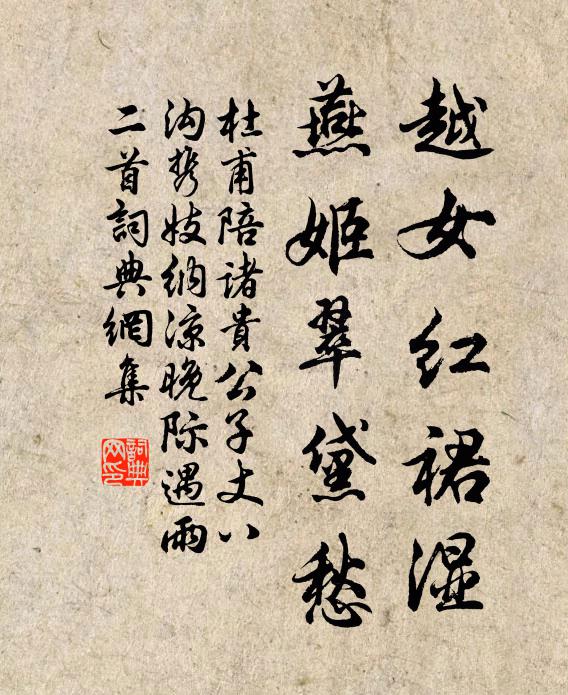 越女红裙湿
燕姬翠黛愁
杜甫陪诸貴公子丈八
沟携妓纳凉晚际遇雨
二首詞典網集
詞典网印